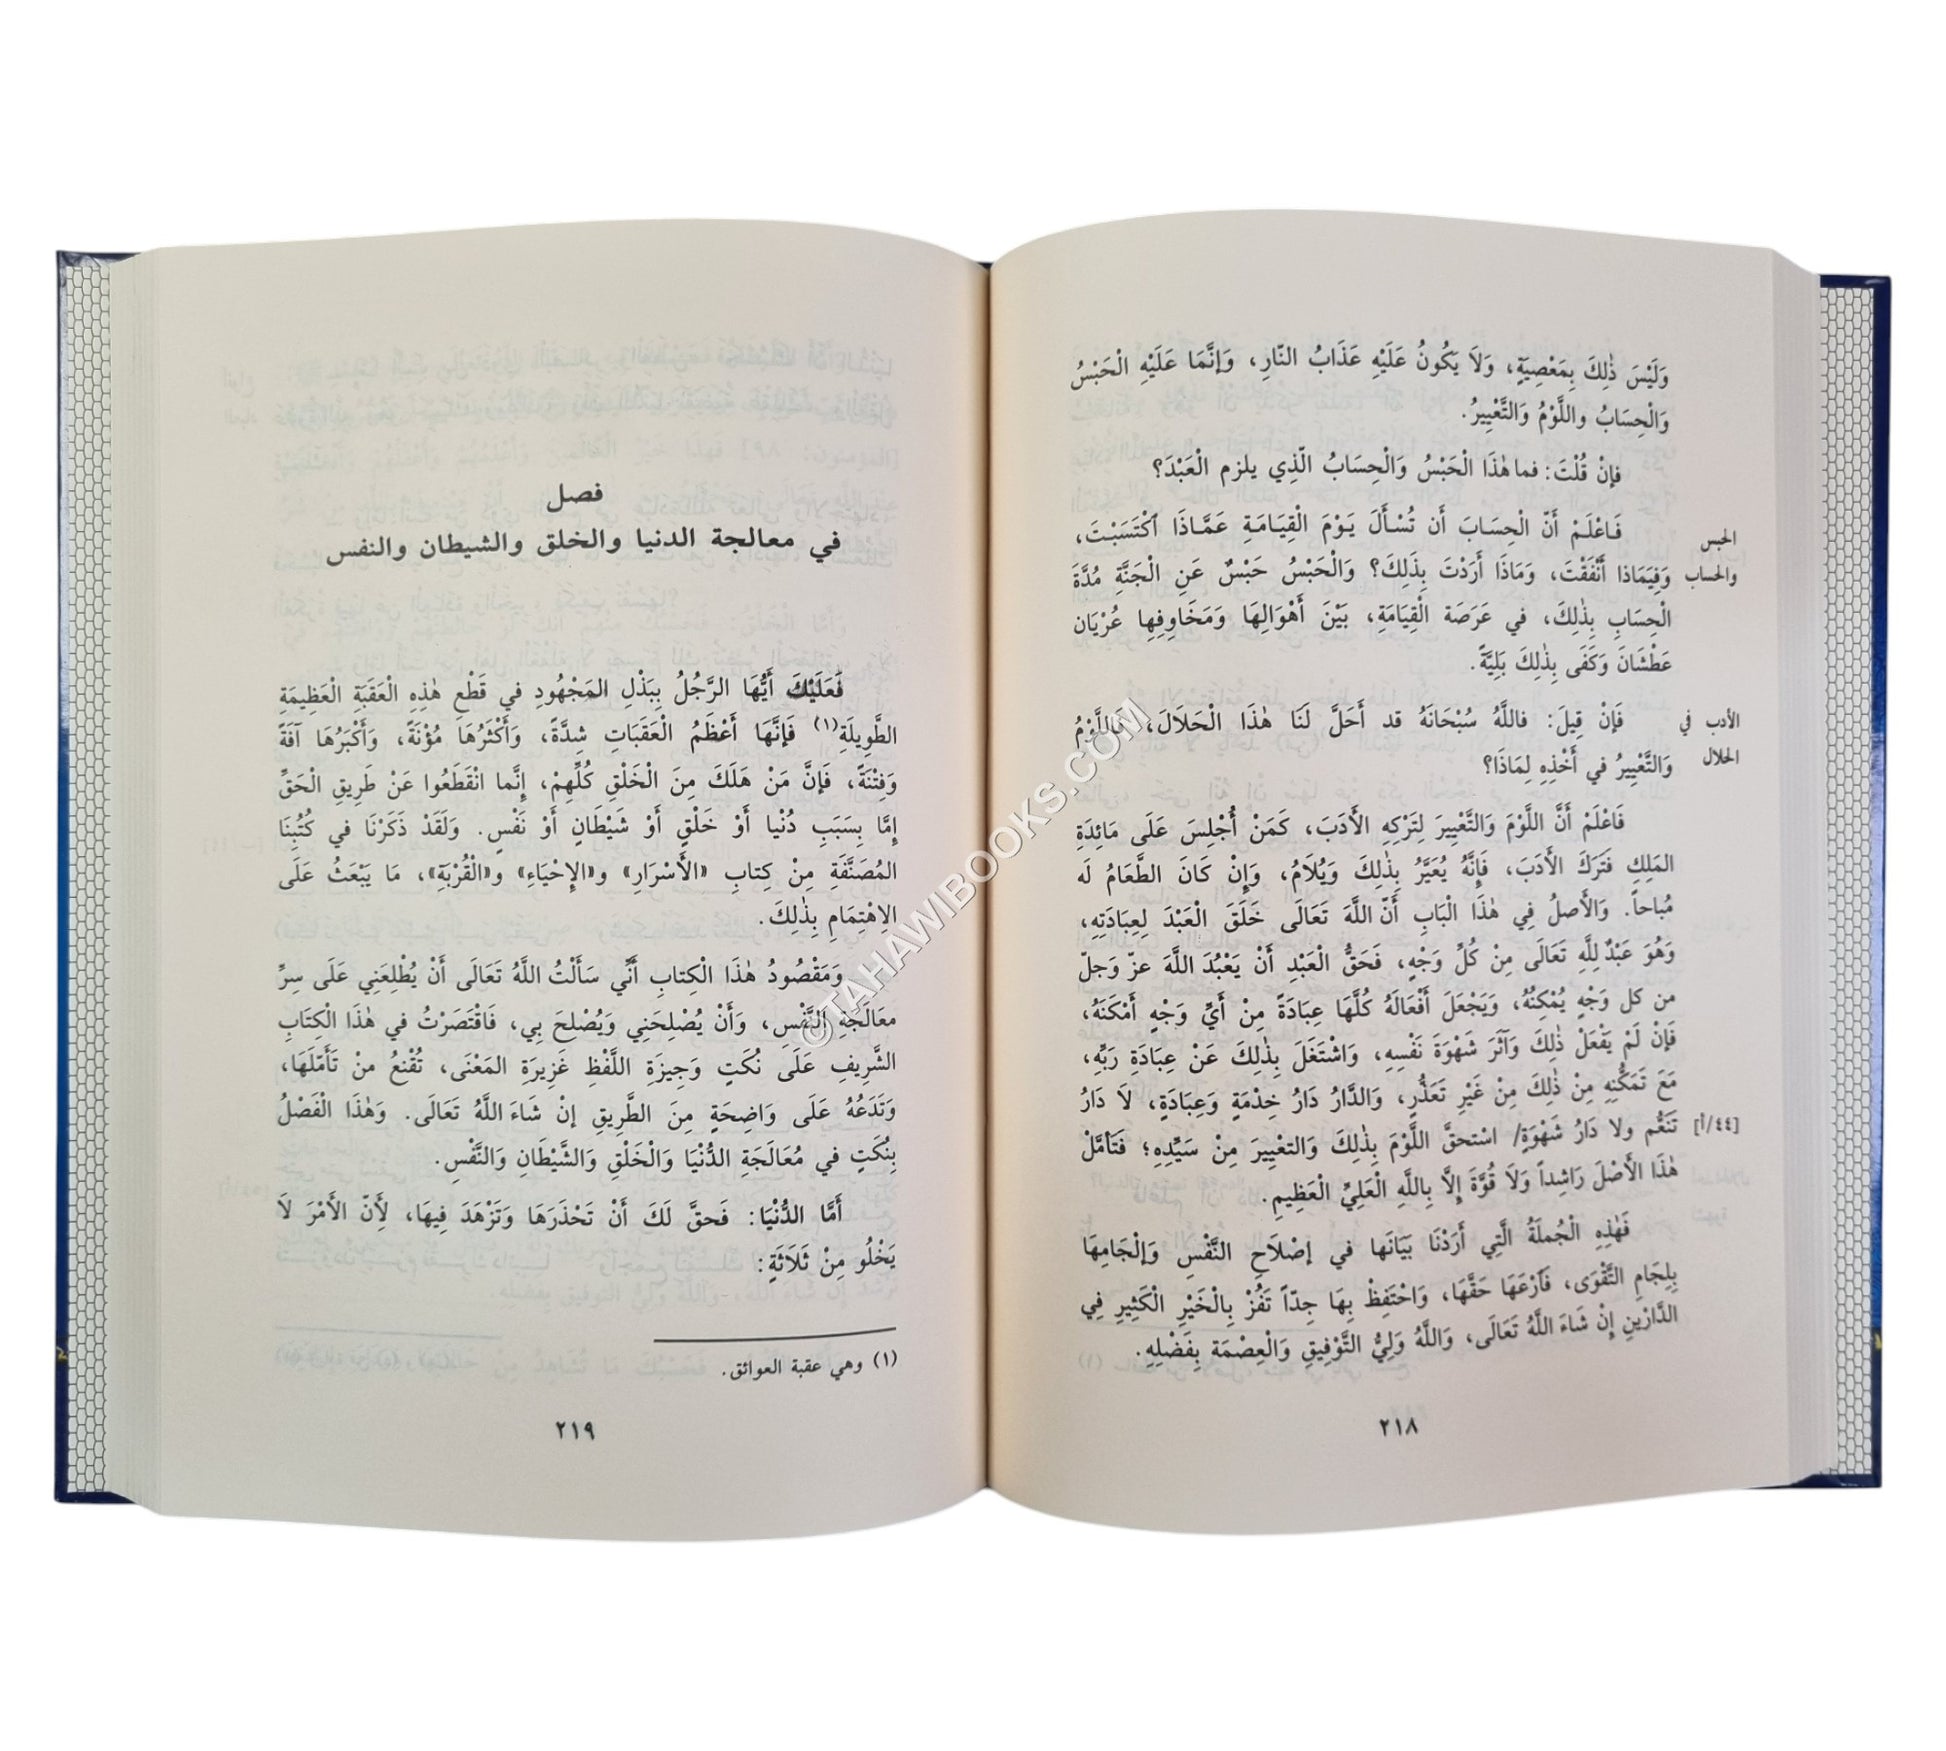 وَلَيْسَ ذٰلِكَ بِمَعْصِيَةٍ، وَلَا يَكُونُ عَلَيْهِ عَذَابُ النّارِ، وَإنَّمَا عَلَيْهِ الْحَبْسُ
وَالْحِسَابُ واللَّوْمُ وَالتَّعْيِيرُ.
فإنْ قُلْتَ: فما هٰذَا الْحَبْسُ وَالْحِسَابُ الّذِي يلزم الْعَبْدَ؟
الحبس
والحساب
فَاعْلَمْ أَنّ الْحِسَابَ أَن تُسْأَلَ يَوْمَ الْقِيَامَةِ عَمَّاذَا ٱكْتَسَبْتَ،
وَفِيمَاذا أَنْفَقْتَ، وَمَاذَا أَرَدْتَ بِذَلِكَ؟ وَالْحَبْسُ حَبْسٌ عَنِ الْجَنَّةِ مُدَّةَ
الْحِسَابِ بِذٰلِكَ، في عَرَصَة الْقِيَامَةِ، بَيْنَ أَهْوَالِهَا وَمَخَاوِفِها عُرْيَان
عَطْشَانَ وَكَفَى بِذٰلِكَ بَلِيَّةً.
الأدب في
الحلال
فَإنْ قِيلَ: فاللَّهُ سُبْحَانَهُ قد أَحَلَّ لَنَا هٰذَا الْحَلَالَ، فَاللَّوْمُ
وَالتَّعْيِيرُ في أَخْذِهِ لِمَاذَا؟
فَاعْلَم أَنَّ اللَّوْمَ وَالتَّعْيِيرَ لِتَرْكِهِ الأَدَبَ، كَمَنْ أُجْلِسَ عَلَى مَائِدَةِ
المَلِكِ فَتَرَكَ الأَدَبَ، فَإنَّهُ يُعَيَّرُ بِذٰلِكَ وَيُلَامُ، وَإِنْ كَانَ الطَّعَامُ لَه
مُباحاً. وَالأَصلُ فِي هٰذَا الْبَابِ أَنّ اللَّهَ تَعَالَى خَلَقَ الْعَبْدَ لِعِبَادَتِهِ،
وَهُوَ عَبْدٌ لِلَّهِ تَعَالَى مِنْ كُلِّ وَجْهٍ، فَحَقُّ الْعَبْدِ أَنْ يَعْبُدَ اللَّهَ عزّ وَجلّ
من كل وَجْهٍ يُمْكِنُهُ، وَيَجْعَلَ أَفْعَالَهُ كُلَّهَا عِبَادَةً مِنْ أَيِّ وَجْهٍ أَمْكَنَهُ،
فَإنْ لَمْ يَفْعَلْ ذٰلِكَ وَآثَرَ شَهْوَةَ نَفْسِهِ، وَاشْتَغَلَ بِذٰلِكَ عَنْ عِبَادَةِ رَبِّهِ،
مَعَ تَمَكُّنِهِ مِنْ ذٰلِكَ مِنْ غَيْرِ تَعَذُّرٍ، وَالدَّارُ دَارُ خِدْمَةٍ وَعِبَادَةٍ، لَا دَارُ
[٤٤/أ]
تَنَعُّم ولا دَارُ شَهْوَةٍ/ اسْتحقَّ اللَّوْمَ بِذٰلِكَ وَالتعْيِيرَ مِنْ سَيِّدِهِ؛ فَتَأمَّلْ
هٰذَا الأَصْلَ رَاشِداً وَلَا قُوَّةَ إلَّا بِاللَّهِ الْعَلِيِّ الْعَظِيمِ.
فَهٰذِهِ الْجُملَةُ الَّتِي أَرَدْنَا بَيَانَها في إصْلَاحِ النَّفْسِ وَإلْجَامِهَا
بِلِجَامِ التَّقْوَى، فَارْعَهَا حَقَّهَا، وَاحْتَفِظْ بِهَا جِدّاً تَفُزْ بِالْخَيْرِ الْكَثِيرِ فِي
الدَّارَيْنِ إنْ شَاءَ اللَّهُ تَعَالَى، وَاللَّهُ وَلِيُّ التَّوْفِيقِ وَالْعِصْمَة بِفَضْلِهِ.
٢١٨
فصل
في معالجة الدنيا والخلق والشيطان والنفس
فَعَلَيْكَ أَيُّهَا الرَّجُلُ بِبَذْلِ المَجْهُودِ في قَطْعِ هٰذِهِ الْعَقَبَةِ الْعَظِيمَةِ
الطَّوِيلَةِ(١) فَإنَّهَا أَعْظَمُ الْعَقَبَاتِ شِدَّةً، وَأَكْثَرُهَا مُؤْنَةً، وَأَكْبَرُهَا آفَةً
وَفِتْنَةً، فَإنَّ مَنْ هَلَكَ مِنَ الْخَلْقِ كُلِّهِمْ، إِنَّما انْقَطَعُوا عَنْ طَرِيقِ الْحَقِّ
إمَّا بِسَبَبِ دُنْيا أَوْ خَلْقٍ أَوْ شَيْطَانٍ أَوْ نَفْسٍ. وَلَقَدْ ذَكَرْنَا في كُتُبِنَا
المُصَنَّفَةِ مِنْ كِتابِ «الأَسْرَارِ» و«الإحْيَاءِ» و«الْقُرْبَةِ»، مَا يَبْعَثُ عَلَى
الاِهْتِمَامِ بِذٰلِكَ.
وَمَقْصُودُ هٰذَا الْكِتابِ أَنّي سَأَلْتُ اللَّهُ تَعَالَى أَنْ يُطْلِعَنِي عَلَى سِرِّ
معَالَجَةِ النَّفْسِ، وَأَنْ يُصْلِحَنِي وَيُصْلِحَ بِي، فَاقْتَصَرْتُ في هٰذَا الْكِتَابِ
الشَّرِيفِ عَلَى نُكَتٍ وَجِيزَةِ اللَّفْظِ غَزِيرَةِ المَعْنَى، تُقْنعُ منْ تَأَمَّلَهَا،
وَتَدَعُهُ عَلَى وَاضِحَةٍ مِنَ الطَّرِيقِ إنْ شَاءَ اللَّهُ تَعَالَى. وَهٰذَا الْفَصْلُ
بِنُكَتٍ في مُعَالَجَةِ الدُّنْيَا وَالْخَلْقِ وَالشَّيْطَانِ وَالنَّفْسِ.
أَمَّا الدُّنْيَا: فَحقَّ لَكَ أَنْ تَحْذَرَهَا وَتَزْهَدَ فِيهَا، لِأَنّ الأَمْرَ لَا
يَخْلُو مِنْ ثَلَاثَةٍ:
(١) وهي عقبة العوائق.
٢١٩
©TAHAWIBOOKS.COM